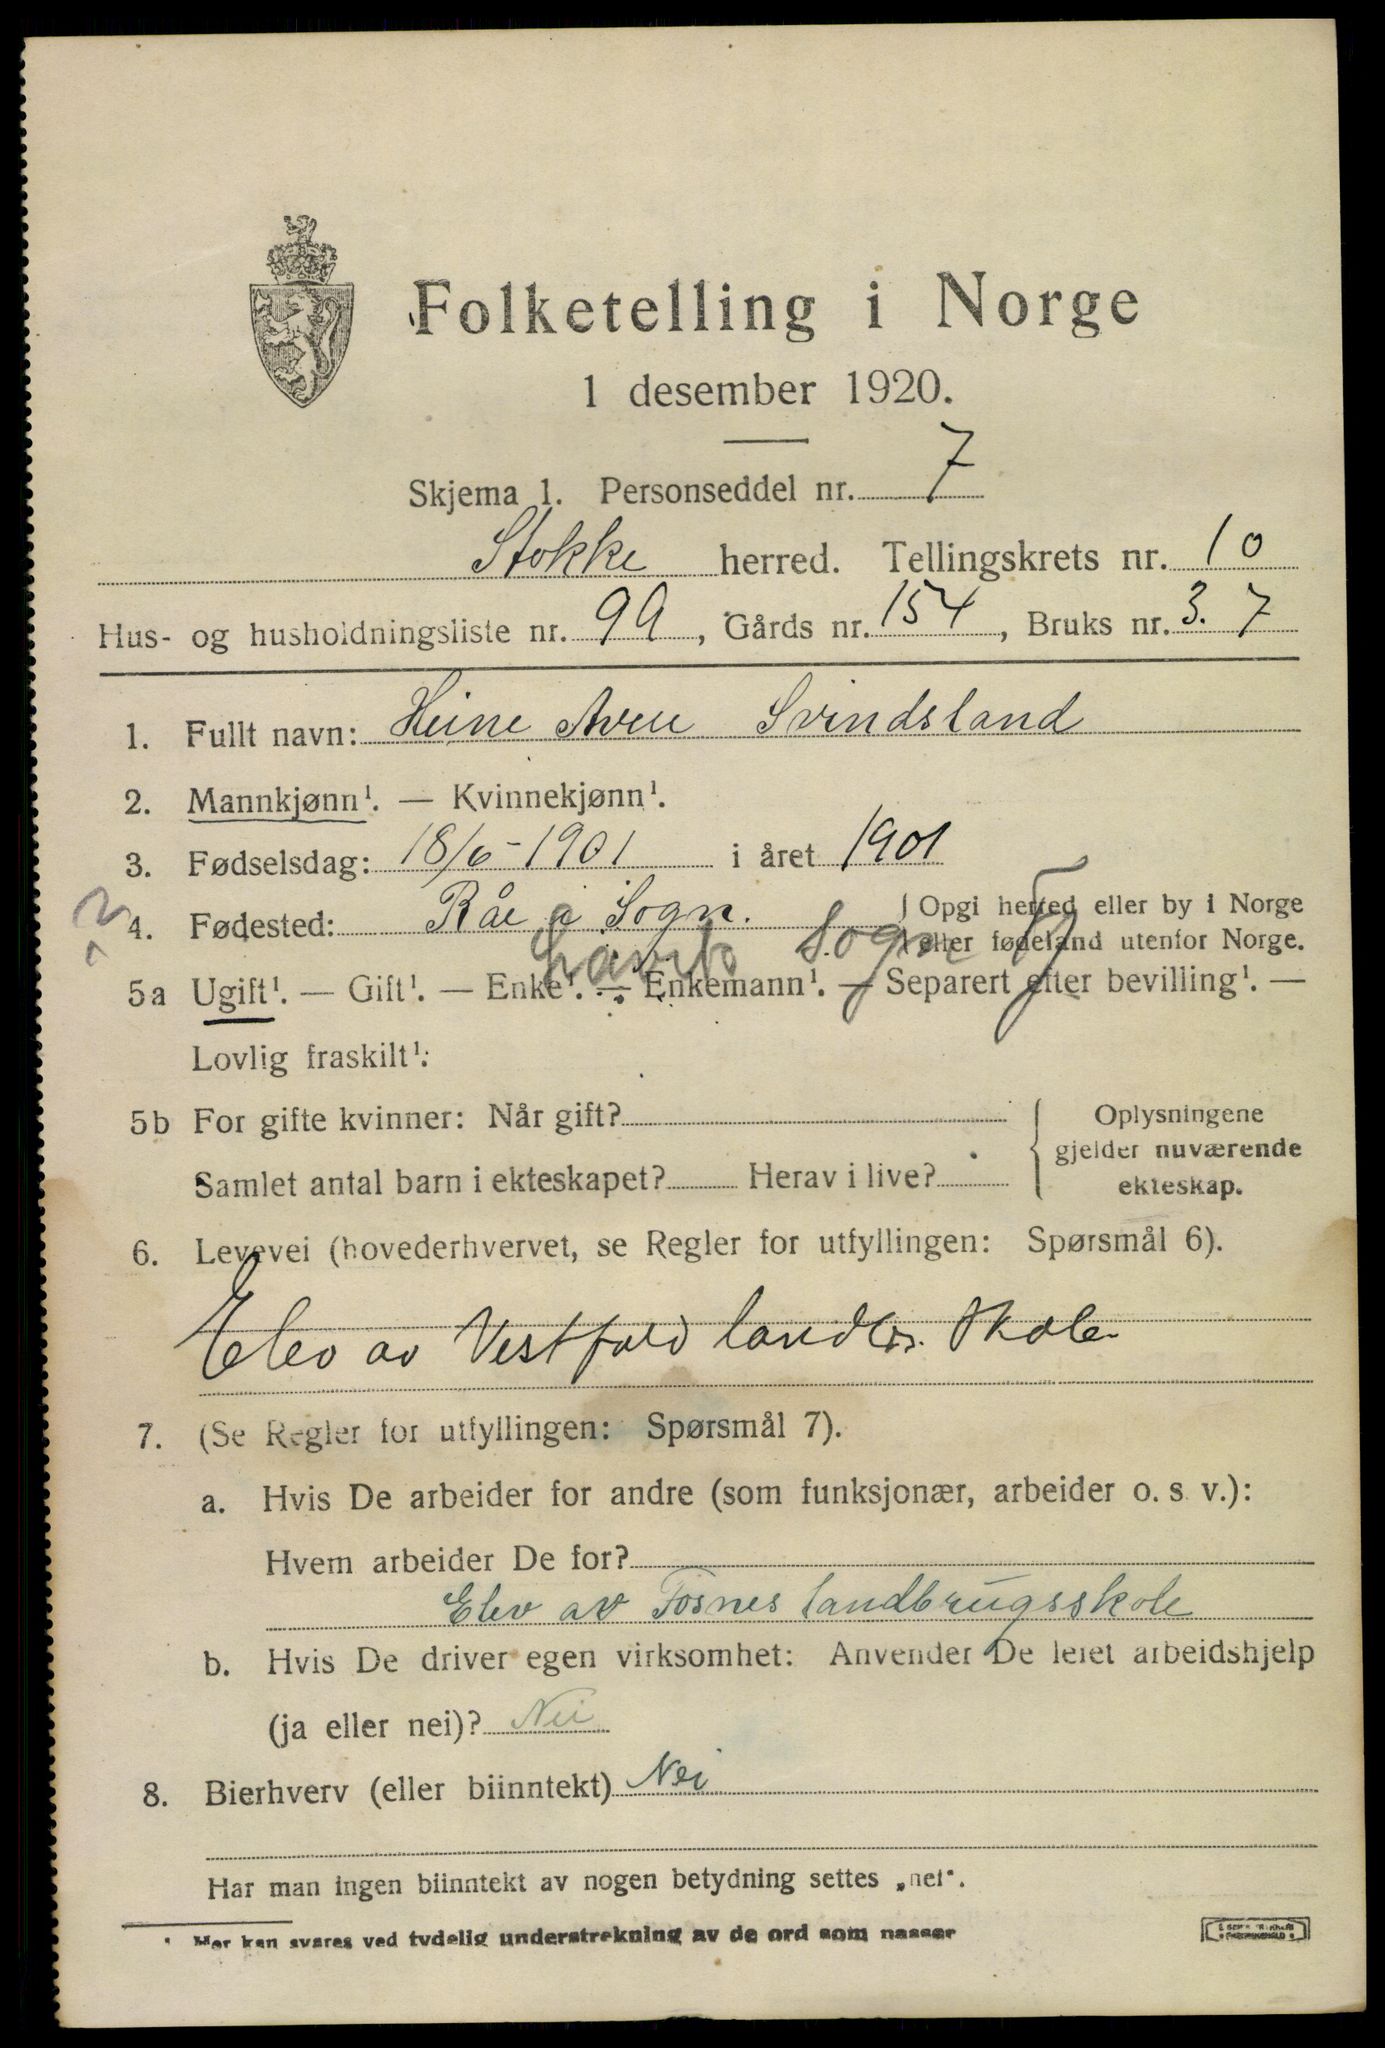 Folketelling i Norge
1 desember 1920.
Skjema 1. Personseddel nr. 7
Stokke herred. Tellingskrets nr. 10
Hus- og husholdningsliste nr. 99, Gårds nr. 154, Bruks nr. 3.7
1. Fullt navn: Heine Svindsland
2. Mannkjønn¹. — Kvinnekjønn¹.
3. Fødselsdag: 18/6-1901 i året 1901
4. Fødested: Råe i Sogn. { Opgi herred eller by i Norge
eller fødeland utenfor Norge.
Sogn
5a Ugift¹. — Gift¹. — Enke¹. — Enkemann¹. — Separert efter bevilling¹. —
Lovlig fraskilt¹:
5b For gifte kvinner: Når gift? { Oplysningene
gjelder nuværende
ekteskap.
Samlet antal barn i ekteskapet? Herav i live?
6. Levevei (hovederhvervet, se Regler for utfyllingen: Spørsmål 6).
Elev av Vestfold landbr. skole
7. (Se Regler for utfyllingen: Spørsmål 7).
a. Hvis De arbeider for andre (som funksjonær, arbeider o. s. v.):
Hvem arbeider De for?
Elev av Fosnes landbrugsskole
b. Hvis De driver egen virksomhet: Anvender De leiet arbeidshjelp
(ja eller nei)? Nei
8. Bierhverv (eller biinntekt) Nei
Har man ingen biinntekt av nogen betydning settes „nei".
¹ Her kan svares ved tydelig understrekning av de ord som passer